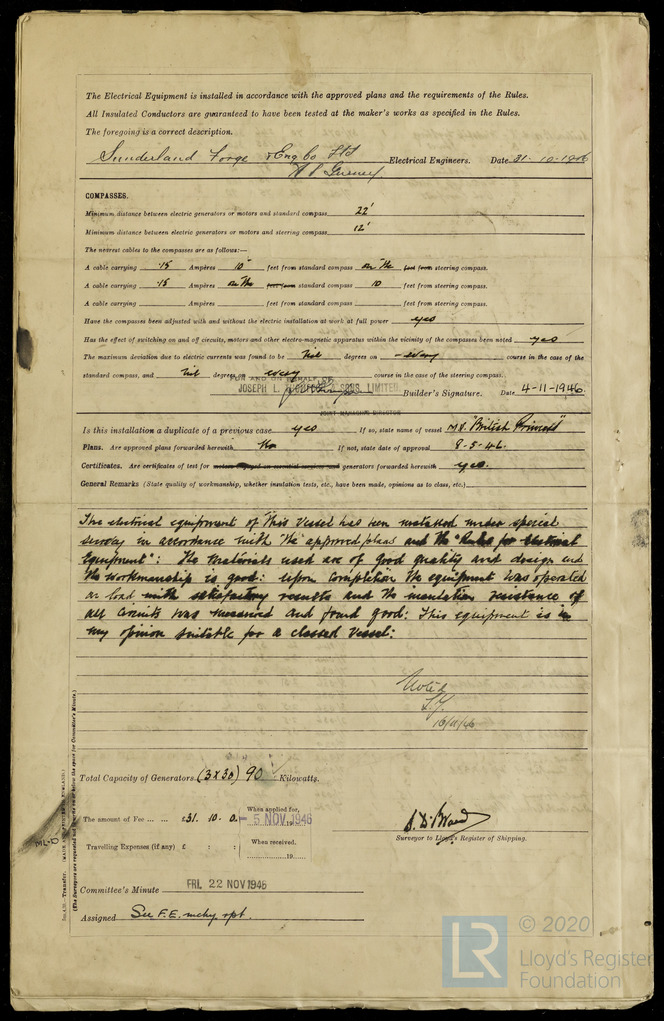 The Electrical Equipment is installed in accordance with the approved plans and the requirements of the Rules.
All Insulated Conductors are guaranteed to have been tested at the maker's works as specified in the Rules.
The foregoing is a correct description.
Sunderland Forge & Eng Co Ltd
Electrical Engineers. Date 31-10-1946
COMPASSES.
Minimum distance between electric generators or motors and standard compass 22'
Minimum distance between electric generators or motors and steering compass 12'
The nearest cables to the compasses are as follows:—
A cable carrying .15 Ampères 10 feet from standard compass on the feet from steering compass.
A cable carrying .15 Ampères on the feet from standard compass 10 feet from steering compass.
A cable carrying Ampères feet from standard compass feet from steering compass.
Have the compasses been adjusted with and without the electric installation at work at full power yes
Has the effect of switching on and off circuits, motors and other electro-magnetic apparatus within the vicinity of the compasses been noted yes
The maximum deviation due to electric currents was found to be Nil degrees on every course in the case of the
standard compass, and nil degrees on every course in the case of the steering compass.
FOR AND ON BEHALF OF
JOSEPH L. THOMPSON & SONS, LIMITED
Builder's Signature. Date 4-11-1946.
JOINT MANAGING DIRECTOR
Is this installation a duplicate of a previous case yes If so, state name of vessel MV. "British Princess"
Plans. Are approved plans forwarded herewith No If not, state date of approval 8-5-46.
Certificates. Are certificates of test for generators forwarded herewith yes.
General Remarks (State quality of workmanship, whether insulation tests, etc., have been made, opinions as to class, etc.)
The electrical equipment of this Vessel has been installed under special
survey in accordance with the approved plans and the "Rules for Electrical
Equipment": The Materials used are of good quality and design and
the workmanship is good: upon completion the equipment was operated
on load with satisfactory results and the insulation resistance of
all circuits was measured and found good: This equipment is in
my opinion suitable for a classed Vessel:
Noted
16/11/46
Total Capacity of Generators (3 X 30) 90 Kilowatts.
The amount of Fee ... ... £31. 10. 0. When applied for,
- 5 NOV 1946
Travelling Expenses (if any) £ : : When received,
19
Surveyor to Lloyd's Register of Shipping.
Committee's Minute FRI. 22 NOV 1946
Assigned See F.E. mchy rpt.
(The Surveyors are requested not to write on or below the space for Committee's Minute.)
© 2020
LR
Lloyd's Register
Foundation